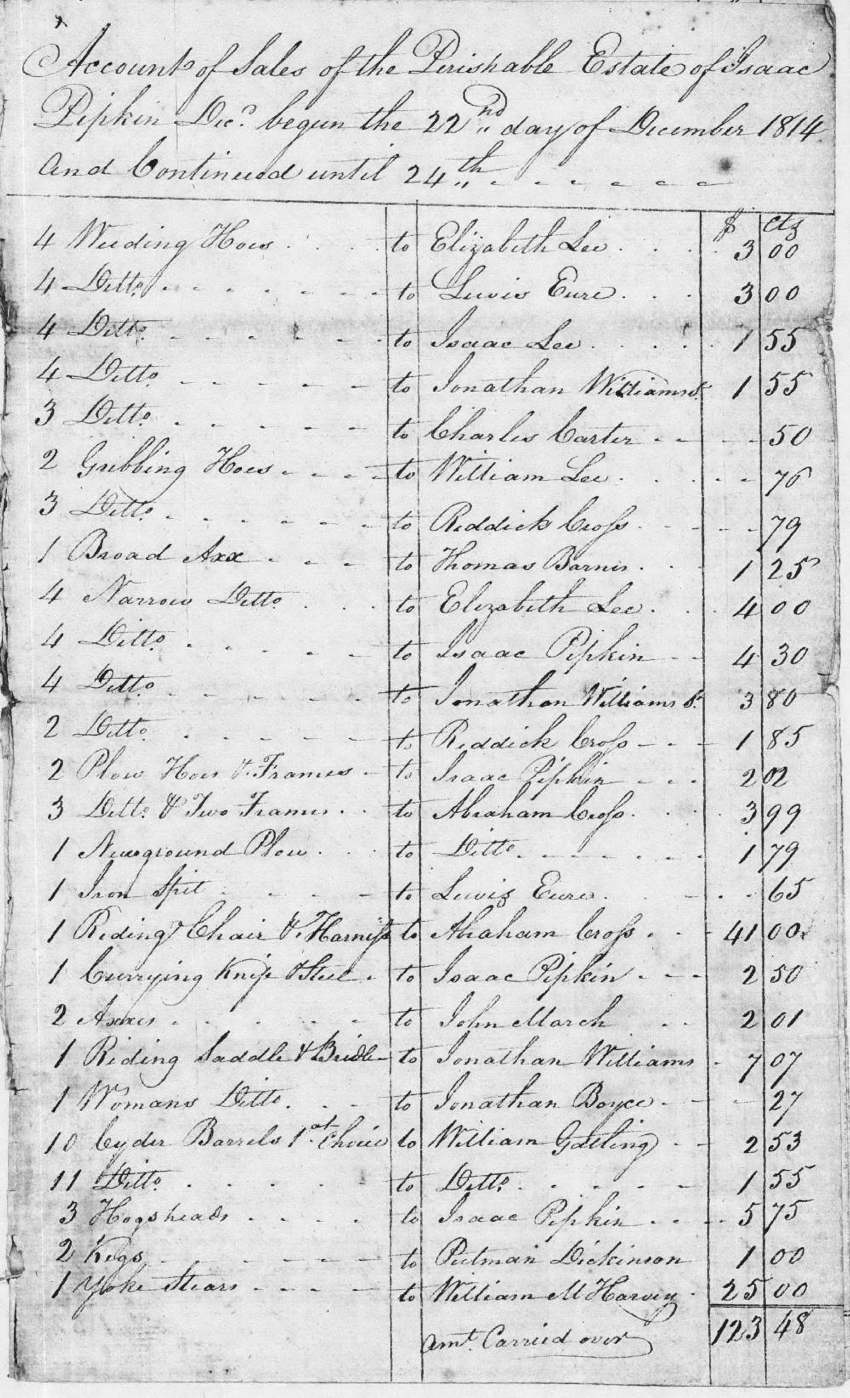 Account of Sales of the Perishable Estate of Isaac
Pipkin Decd. begun the 22nd day of December 1814
and Continued until 24th
$ Cts
4 Weeding Hoes to Elizabeth Lee 3 00
4 Ditto to Lewis Eure 3 00
4 Ditto to Isaac Lee 1 55
4 Ditto to Jonathan Williams Sr. 1 55
3 Ditto to Charles Carter 50
2 Grubbing Hoes to William Lee 76
3 Ditto to Riddick Cross 79
1 Broad Axx to Thomas Barnes 1 25
4 Narrow Ditto to Elizabeth Lee 4 00
4 Ditto to Isaac Pipkin 4 30
4 Ditto to Jonathan Williams Sr. 3 80
2 Ditto to Riddick Cross 1 85
2 Plow Hoes & Frames to Isaac Pipkin 2 02
3 Ditto & Two Frames to Abraham Cross 3 99
1 Newground Plow to Ditto 1 79
1 Iron Spit to Lewis Eure 65
1 Riding Chair & Harniss to Abraham Cross 41 00
1 Currying Knife & Steel to Isaac Pipkin 2 50
2 Axxes to John March 2 01
1 Riding Saddle & Bridle to Jonathan Williams 7 07
1 Womans Ditto to Jonathan Boyce 27
10 Cyder Barrels 1st Choice to William Gatling 2 53
11 Ditto to Ditto 1 55
3 Hogsheads to Isaac Pipkin 5 75
2 Kegs to Putman Dickinson 1 00
1 Yoke Stears to William M Harvey 25 00
Amt. Carried over 123 48